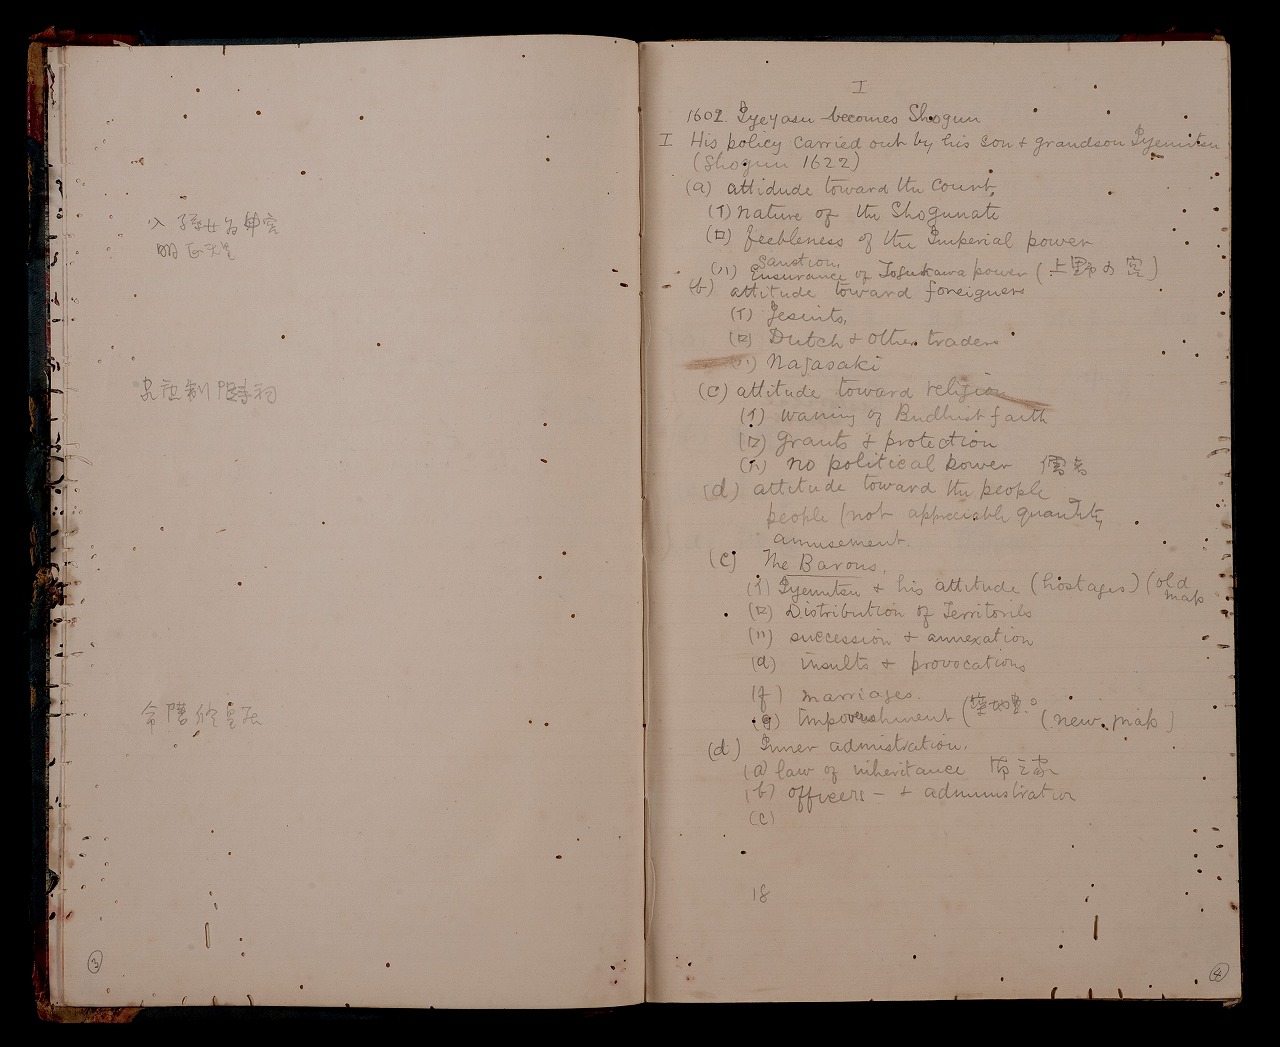 入子孫女為
明正天皇
制
命
3
I
1602. Iyeyasu becomes Shogun
I His policy carried out by his son & grandson Iyemitsu
(Shogun 1622)
(a) attidude toward the Court,
(イ) nature of the Shogunate
(ロ) feebleness of the Imperial power
Sanction,
(ハ) Ensurance of Togukawa power (上野の宮)
(b) attitude toward foreigners
(イ) Jesuits,
(ロ) Dutch & other traders
(ハ) Nagasaki
(c) attitude toward religion
(イ) waning of Budhist faith
(ロ) grants & protection
(ハ) no political power 儒者
(d) attitude toward the people
people (not appreciable quantity,
amusement.
(e) The Barons,
(イ) Iyemitsu & his attitude (hostages) (old map
(ロ) Distribution of Territories
(ハ) succession & annexation
(d) insults & provocations
(f) marriages.
(g) Impoverishment (new map)
(d) Inner admistration,
(a) law of inheritance
(b) officers — & administration
(c)
18
4